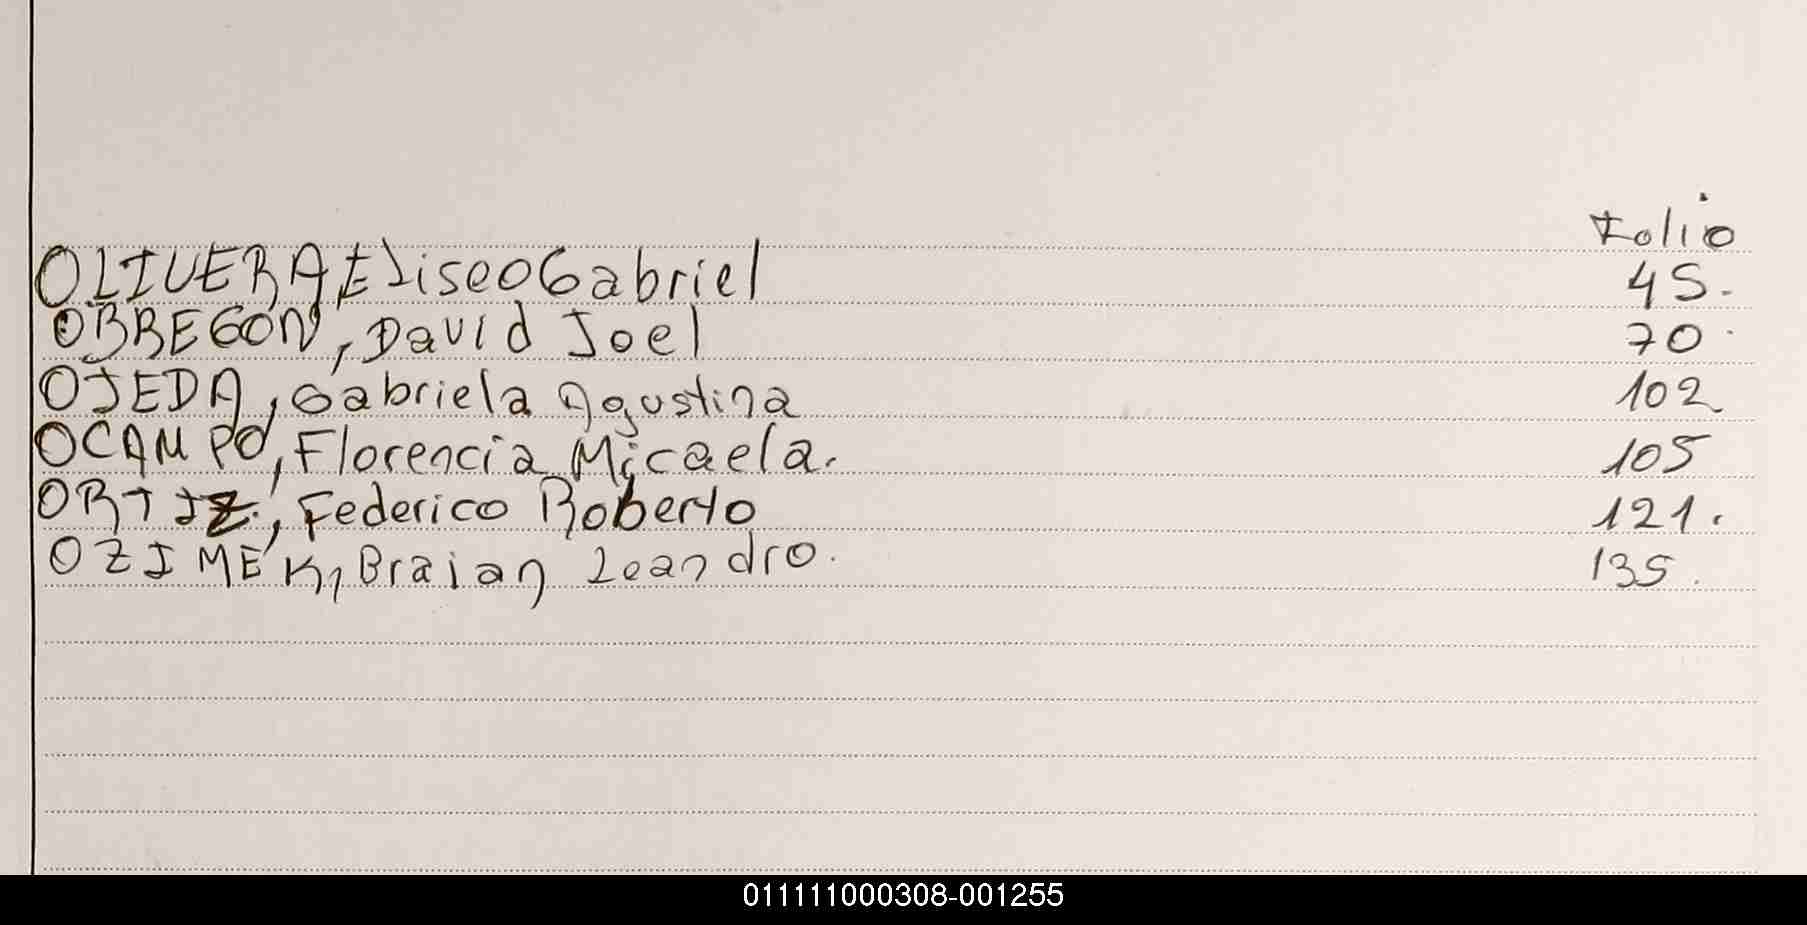 Folio
OLIVERA, Eliseo Gabriel 45.
OBREGON, David Joel 70.
OJEDA, Gabriela Agustina 102
OCAMPO, Florencia Micaela. 105
ORTIZ, Federico Roberto 121.
OZIMEK, Braian Leandro. 135.
011111000308-001255